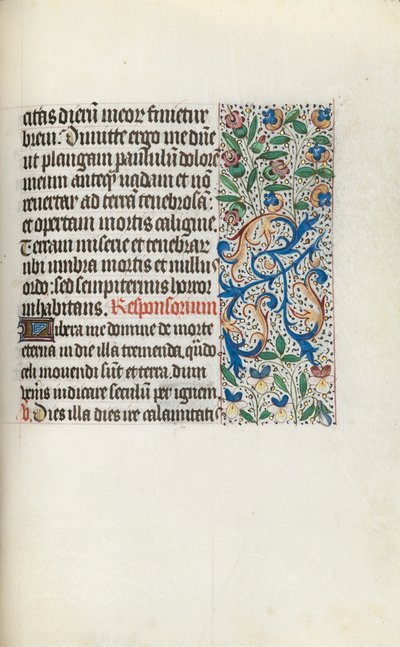 citas dierū meoꝝ finietur
breui. Dimitte ergo me dñe
ut plangam paululū dolorē
meum anteq̄ vadam et nō
reuertar ad terrā tenebrosā:
et opertam mortis caligine
Terram miserie et tenebrar̄
vbi vmbra mortis et nullus
ordo: sed sempiternus horror
inhabitans. Responsorium
Libera me domine de morte
eterna in die illa tremenda, Qn̄do
celi mouendi sūt et terra, dum
veneris iudicare seculum per ignem
v. Dies illa dies ire calamitatis